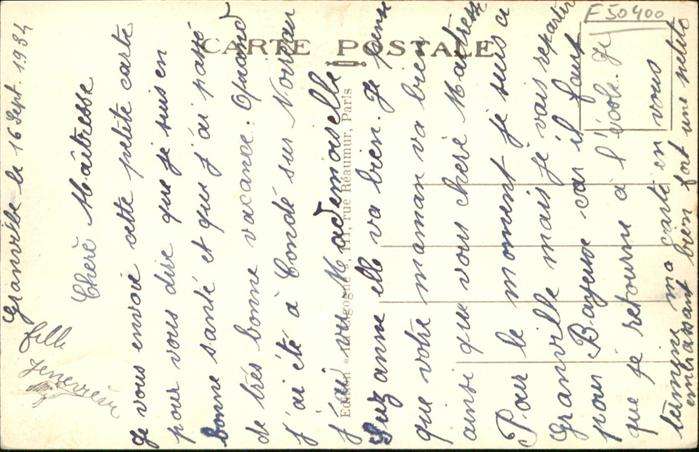 F 50400
CARTE POSTALE
Granville le 16 Sept. 1934
Chere Maîtresse
Je vous envoie cette petite carte
pour vous dire que je suis en
bonne santé et que j'ai passé
de très bonne vacance. Quand
j'ai été à Condé sur Noireau
j'ai vu Mademoiselle
Suzanne elle va bien. Je pense
que votre maman va bien
ainsi que vous chere Maitresse
Pour le moment je suis a
Granville mais je vais repartir
pour Bayeux car il faut
que je retourne à l'école. Je
termine ma carte en vous
embrassant bien fort une petite
fille
rue Réaumur, Paris